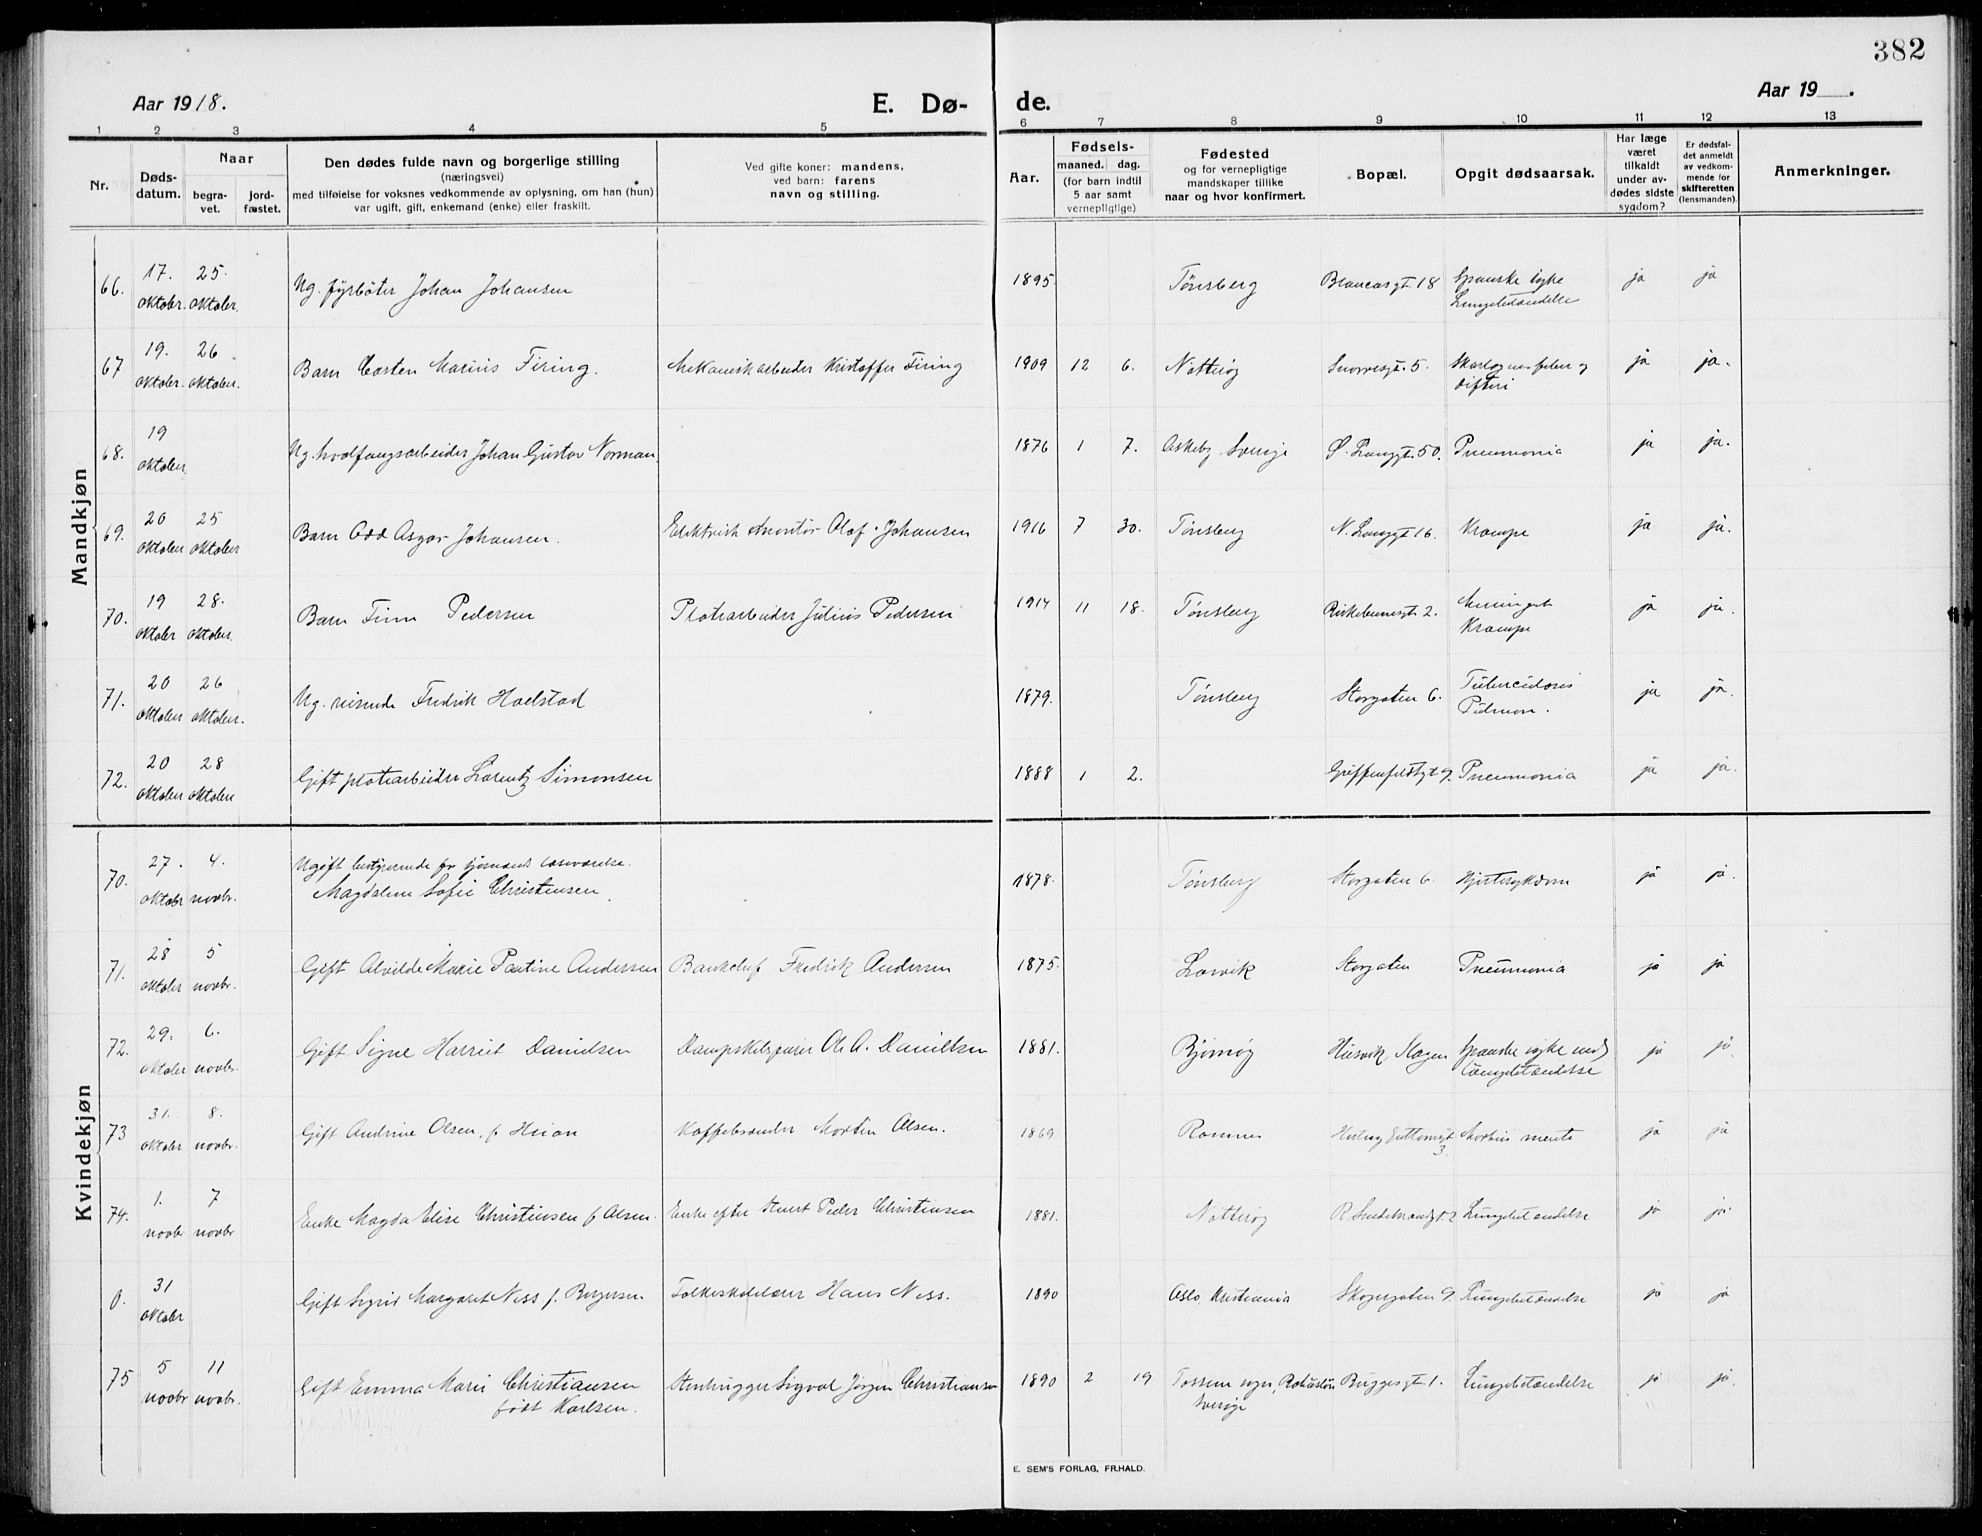 382
Aar 1918.
E. Dø-
de.
Aar 19 .
1 2 3 4 5 6 7 8 9 10 11 12 13
Nr.
Døds-
datum.
Naar
begra-
vet.
jord-
fæstet.
Den dødes fulde navn og borgerlige stilling
(næringsvei)
med tilføielse for voksnes vedkommende av oplysning, om han (hun)
var ugift, gift, enkemand (enke) eller fraskilt.
Ved gifte koner: mandens,
ved barn: farens
navn og stilling.
Aar.
Fødsels-
maaned. dag.
(for barn indtil
5 aar samt
vernepligtige)
Fødested
og for vernepligtige
mandskaper tillike
naar og hvor konfirmert.
Bopæl.
Opgit dødsaarsak.
Har læge
været
tilkaldt
under av-
dødes sidste
sygdom?
Er dødsfal-
det anmeldt
av vedkom-
mende for
skifteretten
(lensmanden).
Anmerkninger.
Mandkjøn
66. 17. oktober. 25. oktober. Ug. fyrbøter Johan Johansen 1895 Tønsberg 18 Spanske syke Lungebetændelse ja ja
67 19. oktober. 26 oktober. Barn Carsten Marius Firing. Mekanikarbeider Kristoffer Firing 1909 12 6. Nøtterøy Snorresgt. 5. Skarlagensfeber og difteri ja ja.
68. 19 oktober Ug. hvalfangsarbeider Johan Gustav Norman. 1876 1 7. Askeby Sverige Ø. Langgt. 50. Pneumonia ja ja.
69. 20 oktober 25 oktober Barn Odd Asgar Johansen. Elektrisk Montør Olaf Johansen 1916 7 30. Tønsberg N. Langgt 16. Krampe ja ja.
70. 19 oktober 28. oktober. Barn Finn Pedersen Platearbeider Julius Pedersen 1914 11 18. Tønsberg Birkebeinergt. 2. Krampe ja ja.
71. 20 oktober 26 oktober. Ug. reisende Fredrik Hoelstad 1879. Tønsberg Storgaten 6. Tuberculosis Pulmon. ja ja.
72. 20 oktober 28 oktober Gift platearbeider Lorentz Simonsen 1888 1 2. Griffenfeldtsgt 9. Pneumonia ja ja.
Kvindekjøn
70. 27. oktobr 4. novbr. Ugift bestyrende for sjømands
Magdalene Sofie Christensen. 1878. Tønsberg Storgaten 6. Hjertesykdom ja ja.
71. 28 oktober 5 novbr. Gift Alvilde Marie Pauline Andersen Bankchef Fredrik Andersen 1875. Larvik Storgaten Pneumonia ja ja
72. 29. oktober 6. novbr. Gift Signe Harriet Danielsen Ole A. Danielsen 1881. Bjørnøy Husvik, Slagen Spanske syke med Lungebetændelse ja ja.
73 31. oktober 8. novbr. Gift Andrine Olsen, f. Kaffebrænder Morten Olsen. 1869 Ramnes 3. ja ja
74. 1. novbr 7 novbr Enke Magda Elise Christensen f. Olsen. Enke efter Stuert Peder Christensen 1881. Nøtterøy Lungebetændelse ja ja.
0. 31 oktober Gift Sigrid Margaret Ness f. Borgersen. Folkeskolelærer Hans Ness. 1890 Oslo, Kristiania Skogergaten 9. Lungebetændelse ja ja
75 5 novbr 11 novbr. Gift Emma Marie Christiansen
født Karlsen. Stenhugger Sigval Jørgen Christiansen 1890 2 19 Tossene sogn, Sverige Buggesgt. 1. Lungebetændelse ja ja.
E. SEM'S FORLAG, FR.HALD.